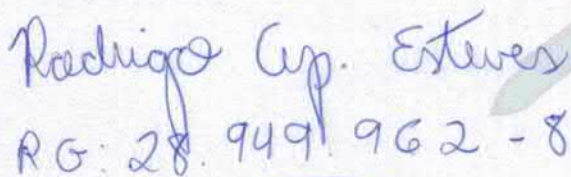 Rodrigo Ap. Esteves
RG: 28.949.962-8